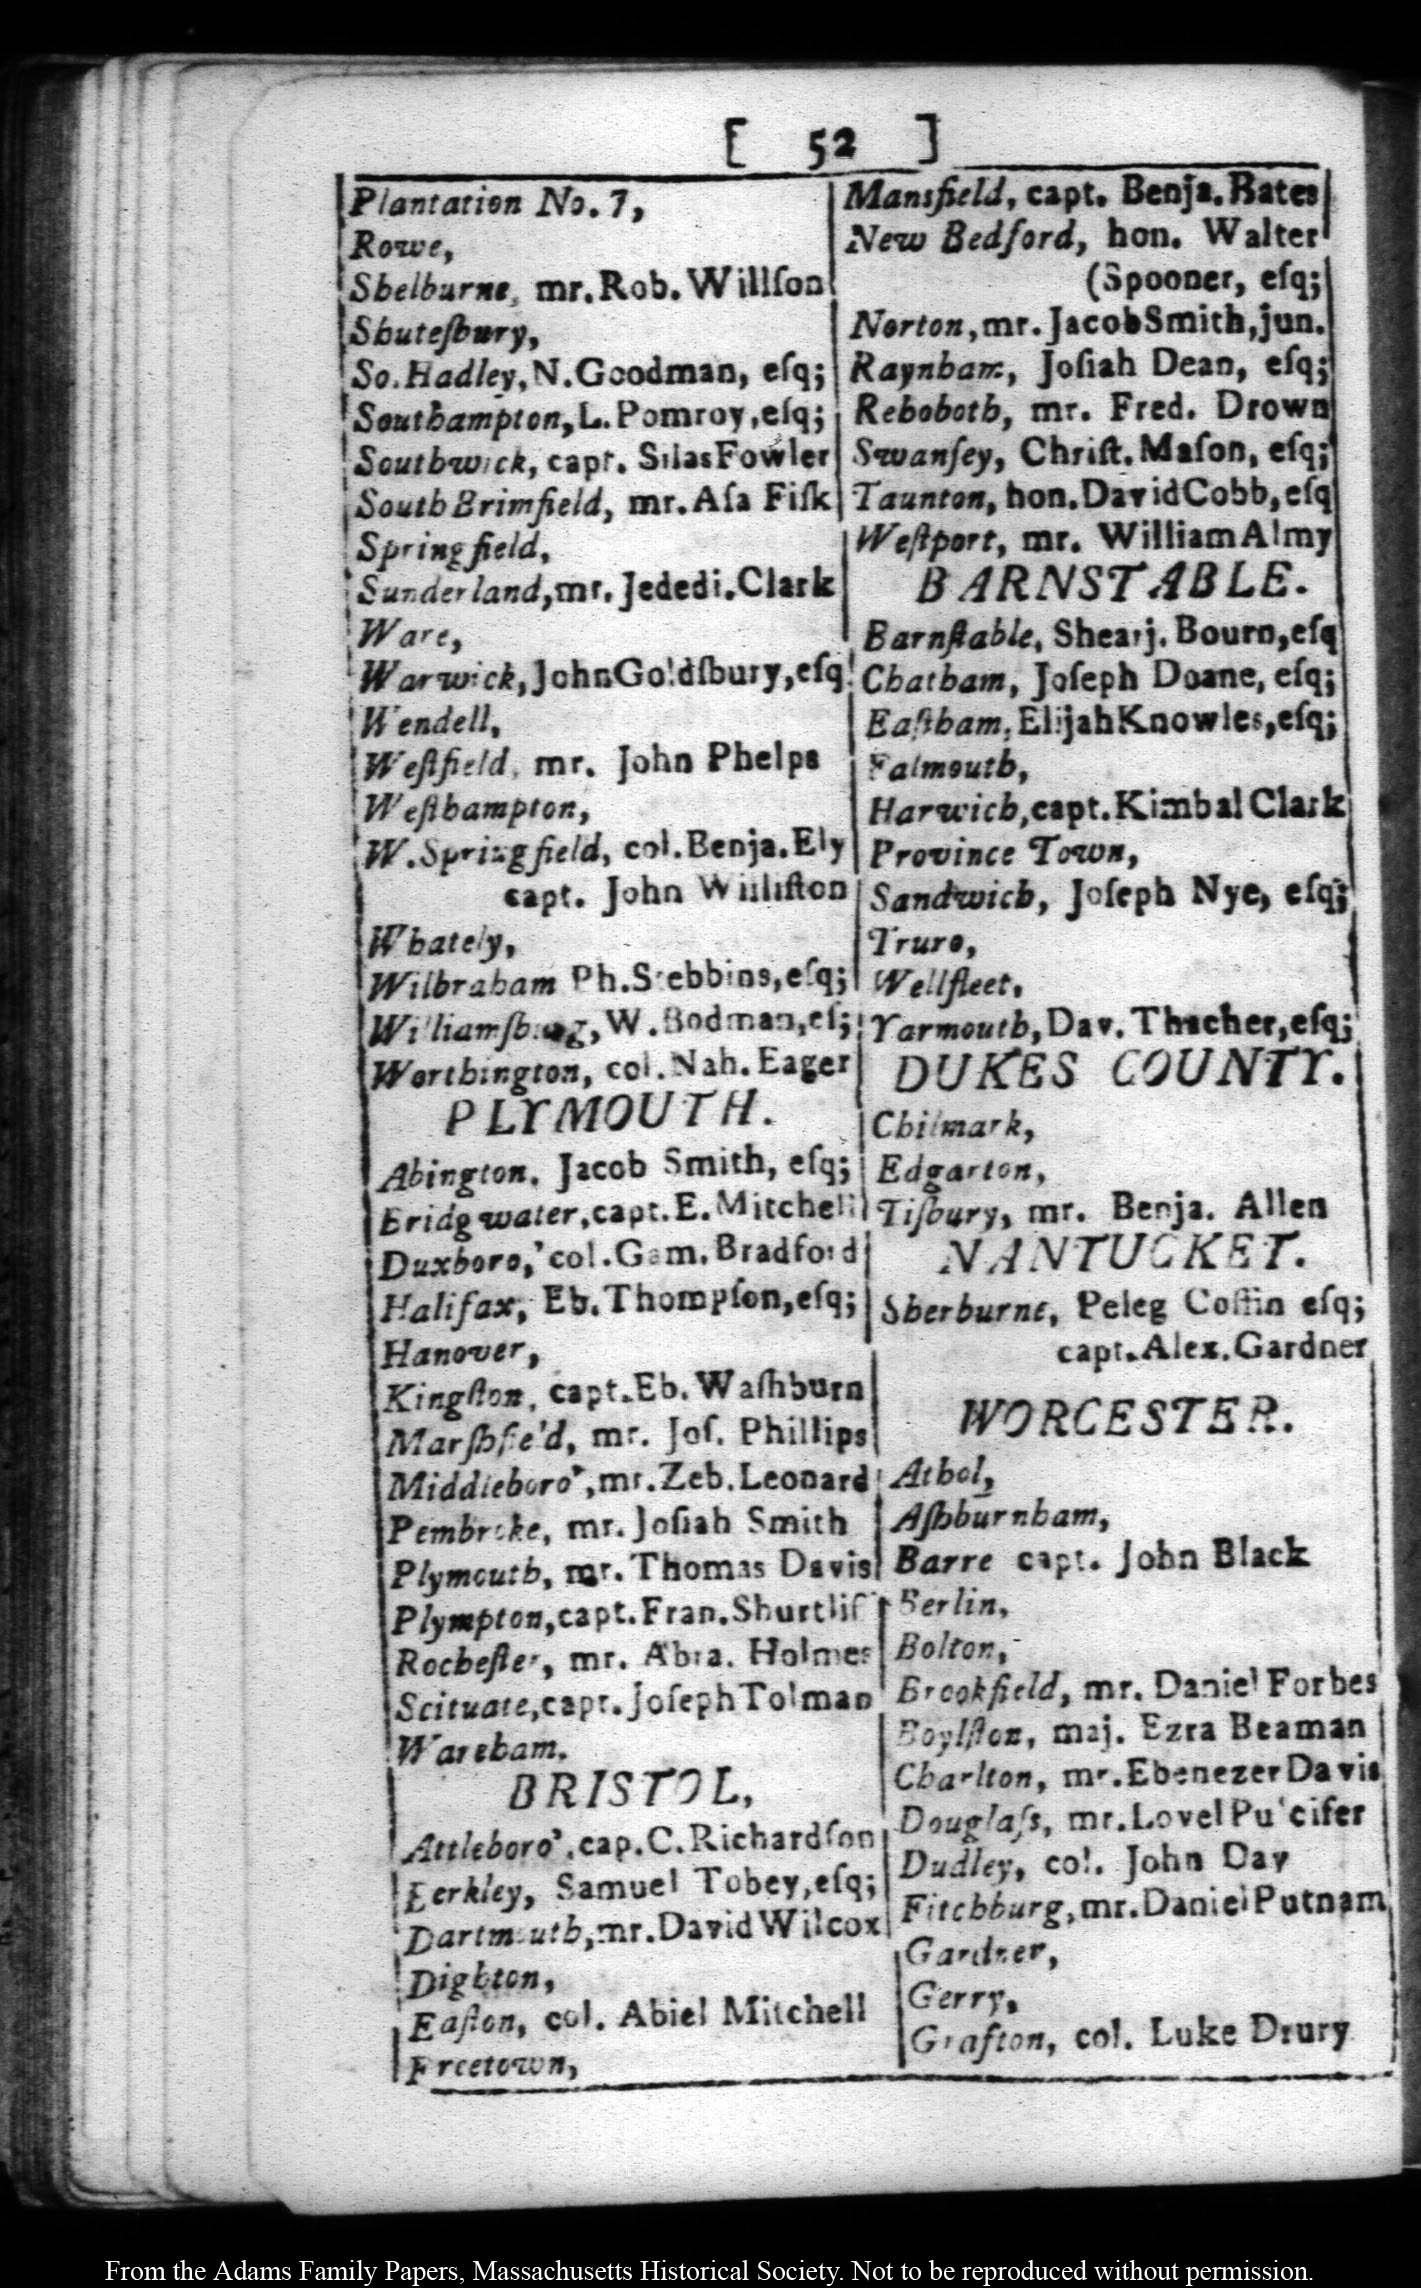 [ 52 ]
Plantation No. 7,
Rowe,
Shelburne, mr. Rob. Willſon
Shuteſbury,
So. Hadley, N. Goodman, eſq;
Southampton, L. Pomroy, eſq;
Southwick, capt. Silas Fowler
South Brimfield, mr. Aſa Fiſk
Springfield,
Sunderland, mr. Jededi. Clark
Ware,
Warwick, John Goldſbury, eſq;
Wendell,
Weſtfield, mr. John Phelps
Weſthampton,
W. Springfield, col. Benja. Ely
capt. John Williſton
Whately,
Wilbraham Ph. Stebbins, eſq;
Williamſburg, W. Bodman, eſ;
Worthington, col. Nah. Eager
PLYMOUTH.
Abington, Jacob Smith, eſq;
Bridgwater, capt. E. Mitchell
Duxboro,' col. Gam. Bradford
Halifax, Eb. Thompſon, eſq;
Hanover,
Kingſton, capt. Eb. Waſhburn
Marſhfield, mr. Joſ. Phillips
Middleboro', mr. Zeb. Leonard
Pembroke, mr. Joſiah Smith
Plymouth, mr. Thomas Davis
Plympton, capt. Fran. Shurtlif
Rocheſter, mr. Abra. Holmes
Scituate, capt. Joſeph Tolman
Wareham.
BRISTOL,
Attleboro', cap. C. Richardſon
Berkley, Samuel Tobey, eſq;
Dartmouth, mr. David Wilcox
Dighton,
Eaſton, col. Abiel Mitchell
Freetown,
Mansfield, capt. Benja. Bates
New Bedford, hon. Walter
(Spooner, eſq;
Norton, mr. Jacob Smith, jun.
Raynham, Joſiah Dean, eſq;
Rehoboth, mr. Fred. Drown
Swanſey, Chriſt. Maſon, eſq;
Taunton, hon. David Cobb, eſq
Weſtport, mr. William Almy
BARNSTABLE.
Barnſtable, Shearj. Bourn, eſq
Chatham, Joſeph Doane, eſq;
Eaſtham, Elijah Knowles, eſq;
Falmouth,
Harwich, capt. Kimbal Clark
Province Town,
Sandwich, Joſeph Nye, eſq;
Truro,
Wellfleet,
Yarmouth, Dav. Thacher, eſq;
DUKES COUNTY.
Chilmark,
Edgarton,
Tiſbury, mr. Benja. Allen
NANTUCKET.
Sherburne, Peleg Coffin eſq;
capt. Alex. Gardner
WORCESTER.
Athol,
Aſhburnham,
Barre capt. John Black
Berlin,
Bolton,
Brookfield, mr. Daniel Forbes
Boylſton, maj. Ezra Beaman
Charlton, mr. Ebenezer Davis
Douglaſs, mr. Lovel Pulcifer
Dudley, col. John Day
Fitchburg, mr. Daniel Putnam
Gardner,
Gerry,
Grafton, col. Luke Drury
From the Adams Family Papers, Massachusetts Historical Society. Not to be reproduced without permission.